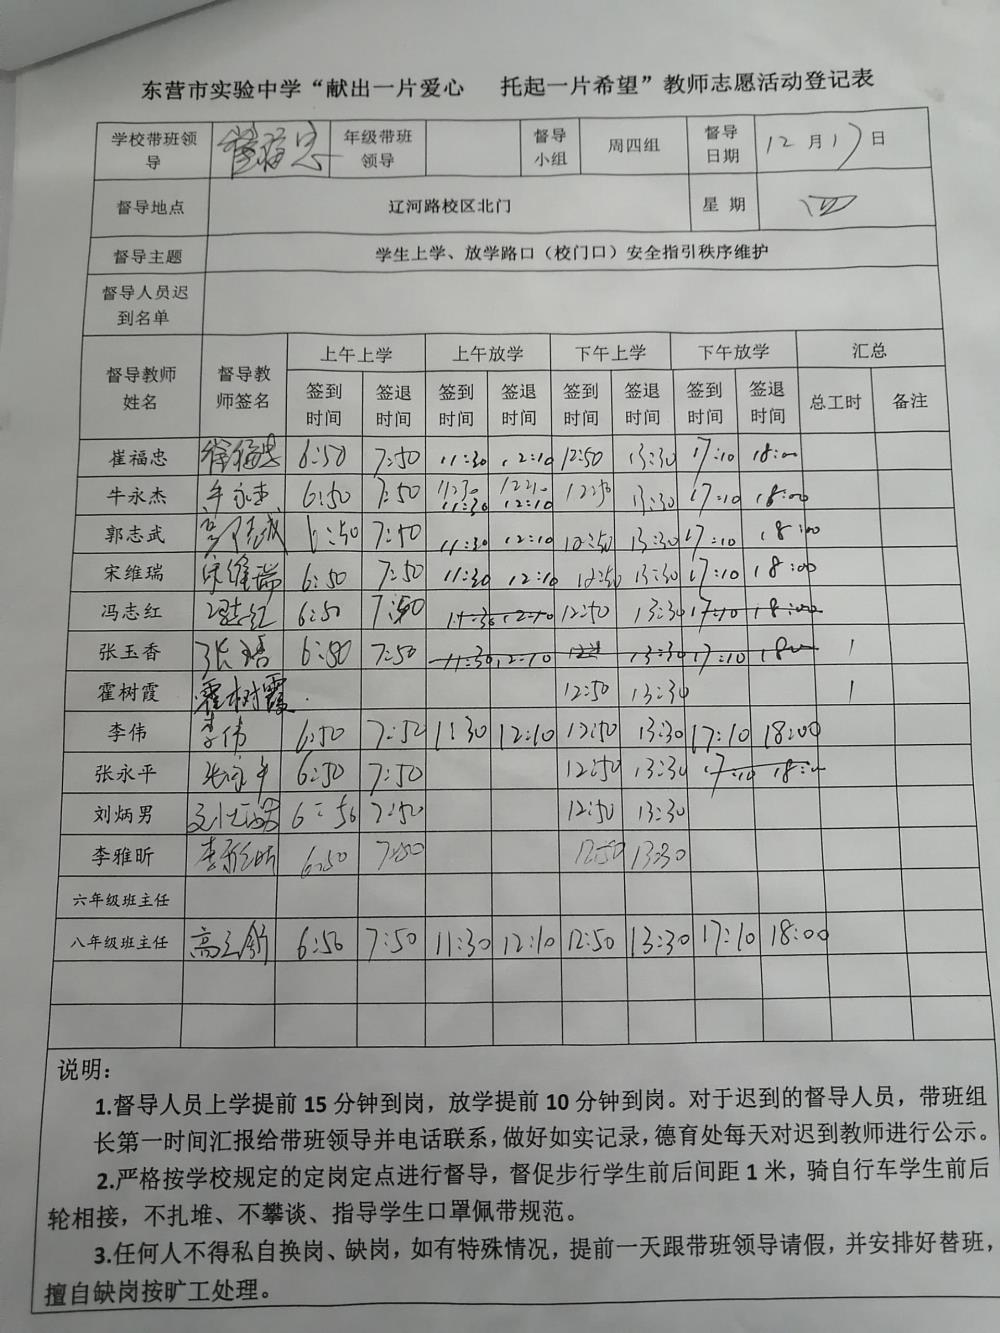 东营市实验中学“献出一片爱心 托起一片希望”教师志愿活动登记表
学校带班领导 崔福忠 年级带班领导 督导小组 周四组 督导日期 12月17日
督导地点 辽河路校区北门 星期 四
督导主题 学生上学、放学路口（校门口）安全指引秩序维护
督导人员迟到名单
督导教师姓名 督导教师签名 上午上学 上午放学 下午上学 下午放学 汇总
签到时间 签退时间 签到时间 签退时间 签到时间 签退时间 签到时间 签退时间 总工时 备注
崔福忠 崔福忠 6:50 7:50 11:30 12:10 12:50 13:30 17:10 18:00
牛永杰 牛永杰 6:50 7:50 11:30 12:10 12:50 13:30 17:10 18:00
郭志武 6:50 7:50 11:30 12:10 12:50 13:30 17:10 18:00
宋维瑞 宋维瑞 6:50 7:50 11:30 12:10 12:50 13:30 17:10 18:00
冯志红 冯志红 6:50 7:50 11:30 12:10 12:50 13:30 17:10 18:00
张玉香 6:50 7:50 11:30 12:10 13:30 17:10 18:00 1
霍树霞 霍树霞 12:50 13:30 1
李伟 李伟 6:50 7:50 11:30 12:10 12:50 13:30 17:10 18:00
张永平 张永平 6:50 7:50 12:50 13:30 17:10 18:00
刘炳男 6:50 7:50 12:50 13:30
李雅昕 李雅昕 6:50 7:50 12:50 13:30
六年级班主任
八年级班主任 6:50 7:50 11:30 12:10 12:50 13:30 17:10 18:00
说明：
1.督导人员上学提前 15 分钟到岗，放学提前 10 分钟到岗。对于迟到的督导人员，带班组
长第一时间汇报给带班领导并电话联系，做好如实记录，德育处每天对迟到教师进行公示。
2.严格按学校规定的定岗定点进行督导，督促步行学生前后间距 1 米，骑自行车学生前后
轮相接，不扎堆、不攀谈、指导学生口罩佩带规范。
3.任何人不得私自换岗、缺岗，如有特殊情况，提前一天跟带班领导请假，并安排好替班，
擅自缺岗按旷工处理。